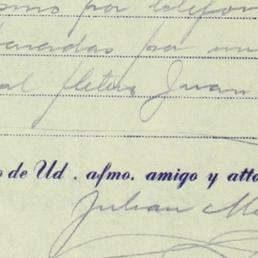 smo por telefon
por un
al fletero Juan
o de Ud. afmo. amigo y atto
Julian M